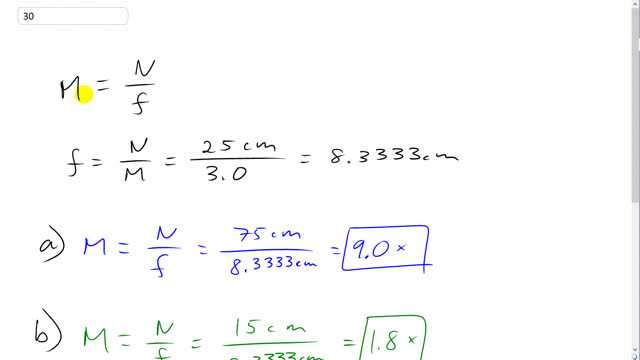 30
M = N/f
f = N/M = 25 cm/3.0 = 8.3333 cm
a) M = N/f = 75 cm/8.3333 cm = 9.0 ×
b) M = N/f = 15 cm/ = 1.8 ×